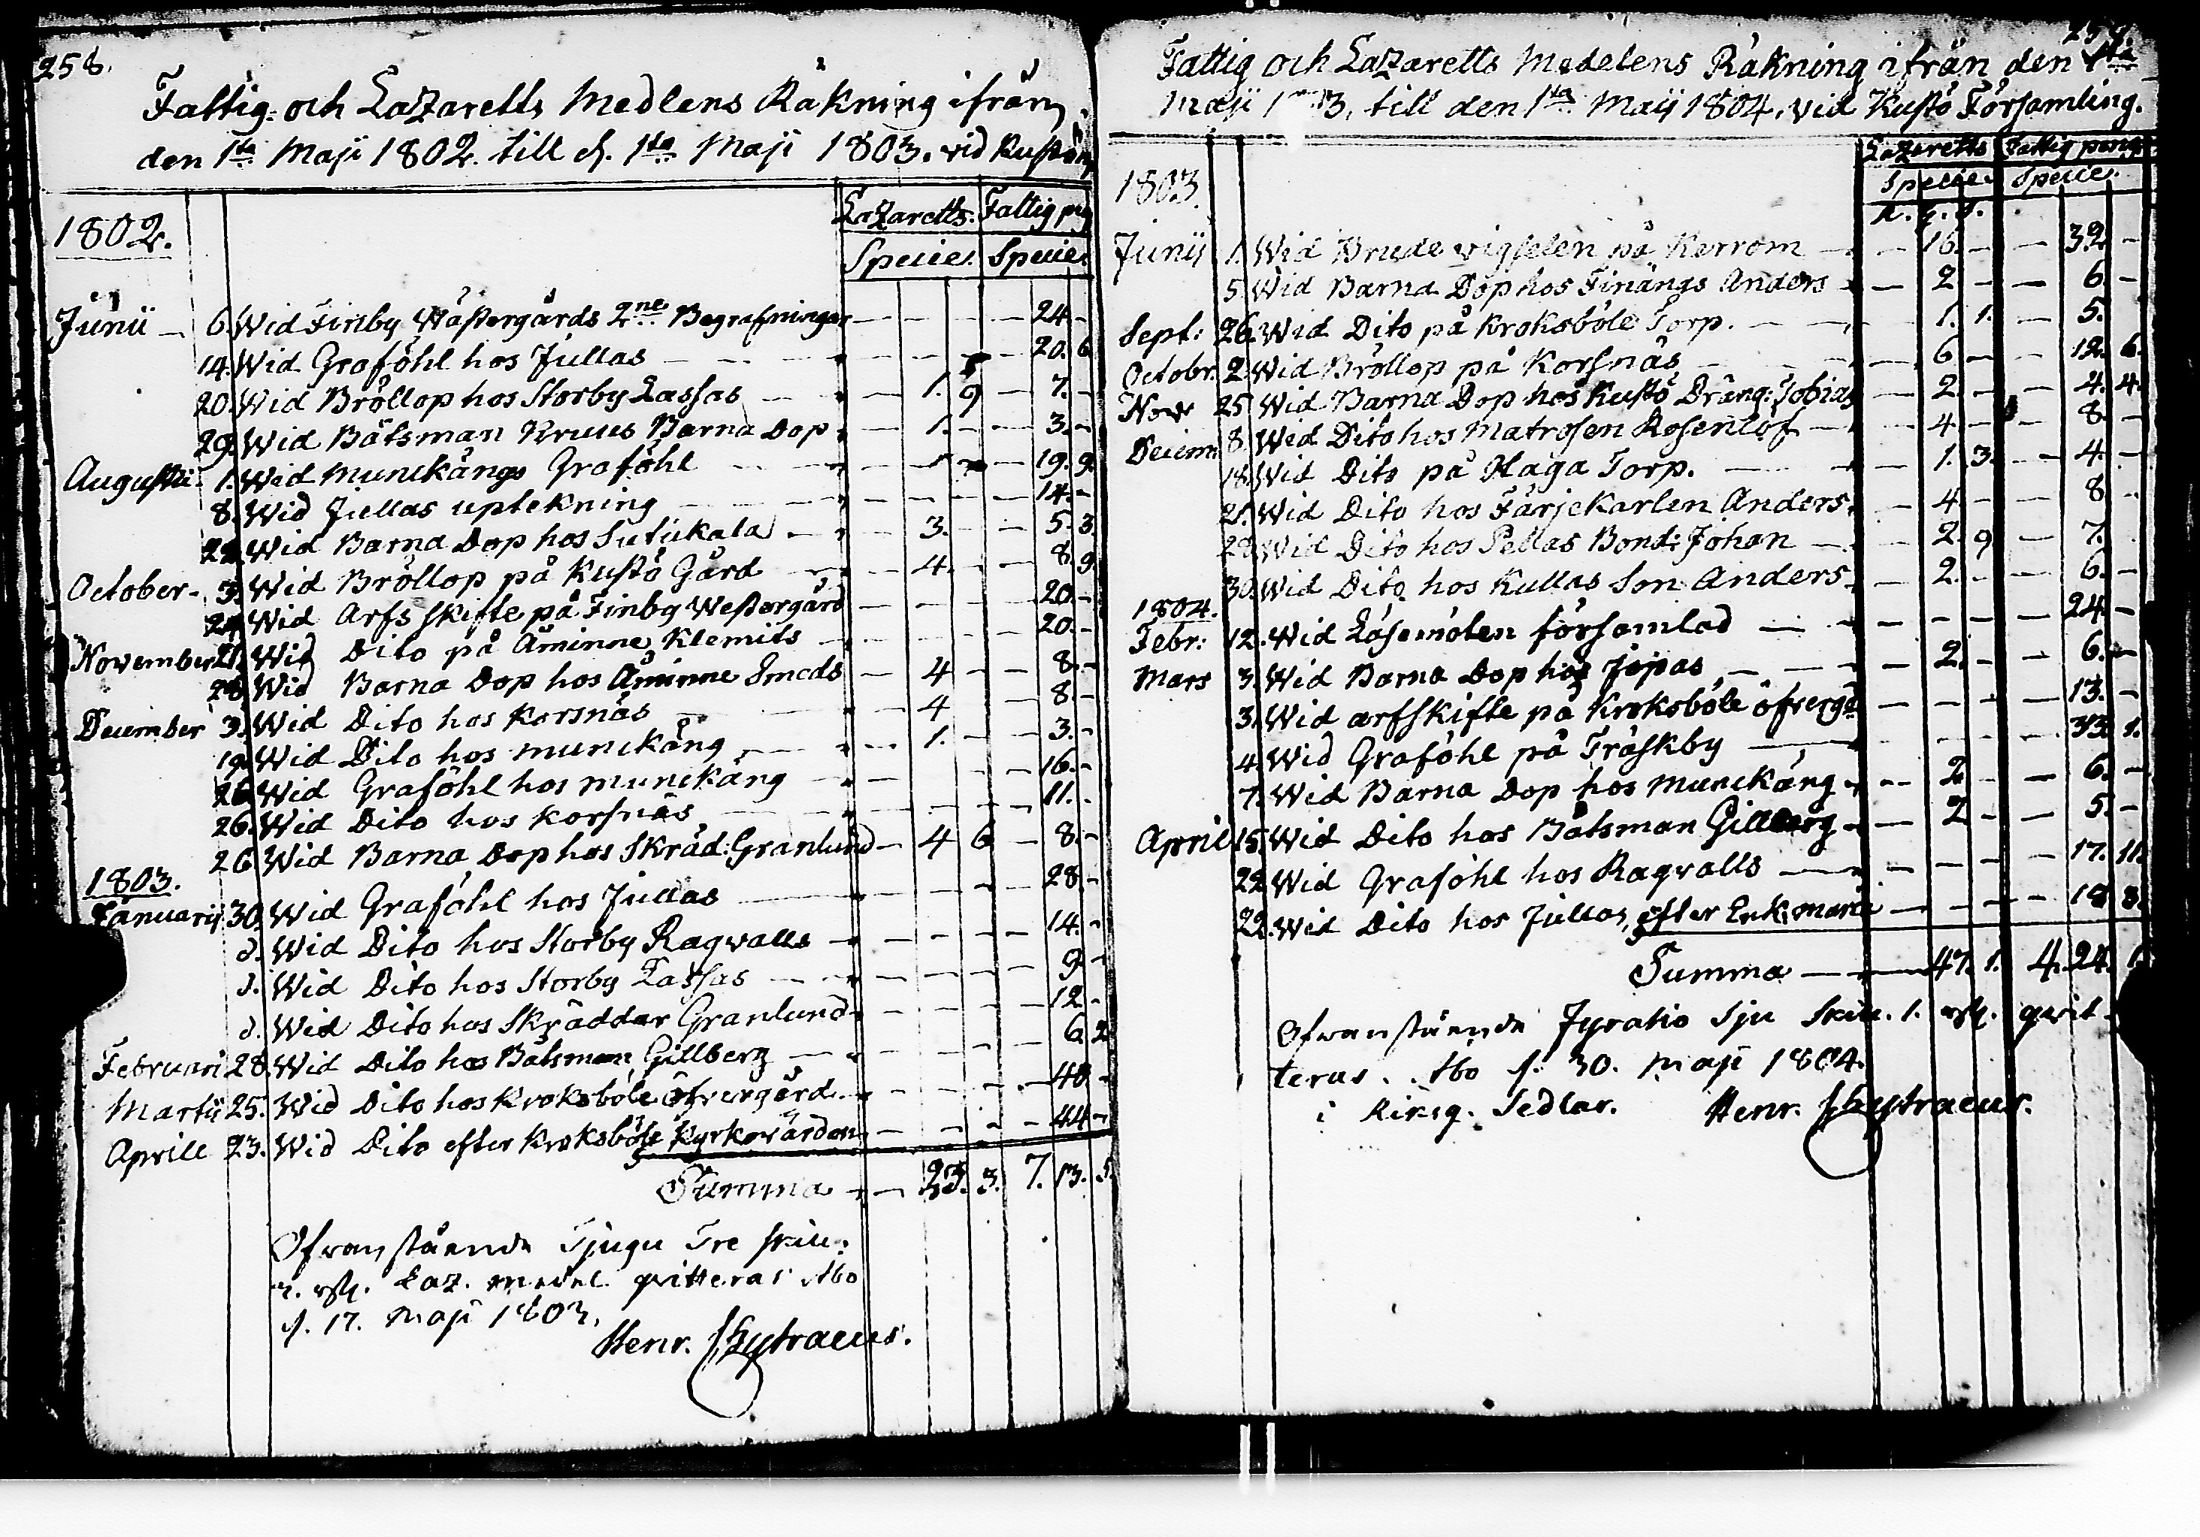 258.
Fattig- och Lazaretts Medlens Räkning ifrån
den 1sta Maji 1802. till d. 1sta Maji 1803. vid Kustö
Lazaretts. Fattig pg
1802.
Specie. Specie.
Junii — 6. Wid Finby Wästergårds 2ne Begrafningar — — — — 24. -
14. Wid Graföhl hos Jullas — — — — 20. 6
20. Wid Bröllop hos Storby Lassas — — 1. 9 — 7. -
29. Wid Båtsman Kruus Barna Dop — 1. — — 3. -
Augusti 1. Wid Munckängs Graföhl — — — 19. 9.
8. Wid Jullas uptekning — — — — 14. -
22. Wid Barna Dop hos Sutukala — — 3. — — 5. 3
October - 3. Wid Bröllop på Kustö Gård — — 4. — — 8. 9
24. Wid Arfs skifte på Finby Westergård — — — — 20. -
November 21. Wid Dito på Åminne Klemits — — — — 20. -
28. Wid Barna Dop hos Åminne Smeds — 4 — — 8. -
December 3. Wid Dito hos Korsnäs — 4 — — 8. -
19. Wid Dito hos Munckäng — — 1. — — 3. -
26. Wid Graföhl hos Munckäng — — — — 16. -
26. Wid Dito hos Korsnäs — — — — 11. -
26. Wid Barna Dop hos Skräd: Granlund — 4 6 — 8. -
1803.
Januarij 30. Wid Graföhl hos Jullas — — — — 28. -
d. Wid Dito hos Storby Ragvalls — — — — 14. -
d. Wid Dito hos Storby Lassas — — — — 9. -
d. Wid Dito hos Skräddar Granlund — — — — 12. -
Februari 28. Wid Dito hos Båtsman Gillberg — — — — 6. 2
Martii 25. Wid Dito hos Kroksböle Öfvergård — — — — 40 -
Aprill 23. Wid Dito efter Kroksböle Kyrkovärden — — — — 44 -
Summa — — 23. 3. 7. 13. 5.
Ofvanstående Tjugu Tre skill:
3. rst. Laz. medel qvitteras Åbo
d. 17. Maji 1803.
Henr. Chytraeus.
Fattig och Lazaretts Medelens Räkning ifrån den 1sta
Maji 1803, till den 1sta Maij 1804. vid Kustö Församling.
Lazaretts Fattig peng
1803.
Specie. Specie.
Junij 1. Wid Brudevigselen på Kerrom — — 16. — — 32. -
5. Wid Barna Dop hos Finängs Anders — — 2 — — 6. -
Sept: 26. Wid Dito på Kroksböle Torp. — — 1. 1. — 5.
Octobr. 2. Wid Bröllop på Korsnäs — — 6 — — 12. 6.
Novr 25. Wid Barna Dop hos Kustö Dräng: Tobias — 2 — — 4. 4.
Decem: 8. Wid Dito hos Matrosen Rosenlöf — 4 — — 8. -
18. Wid Dito på Haga Torp. — — 1. 3. — 4. -
21. Wid Dito hos Färje Karlen Anders — 4 — — 8. -
28. Wid Dito hos Pellas Bond: Johan — 2. 9 — 7. -
30. Wid Dito hos Kullas Son Anders — 2. — — 6. -
1804.
Febr: 12. Wid Läsemöten församlad — — — — 24. -
Mars 3. Wid Barna Dop hos Jopas — — 2. — — 6. -
3. Wid arfskifte på Kroksböle öfvergd — — — — 13. -
4. Wid Graföhl på Träskby — — — — 33. 1.
7. Wid Barna Dop hos Munckäng — — 2 — — 6. -
April 15. Wid Dito hos Båtsman Gillberg — — 2 — — 5. -
22. Wid Graföhl hos Ragvalls — — — — 17. 11.
22. Wid Dito hos Jullas, efter Enk: Maria — — — — 18 8.
Summa — 47. 1. 4. 24. 1.
Ofvanstående Fyratio Sju Skill. 1. rst. qvit-
teras. Åbo d. 30. Maji 1804.
i Riksg. Sedlar. Henr. Chytraeus.